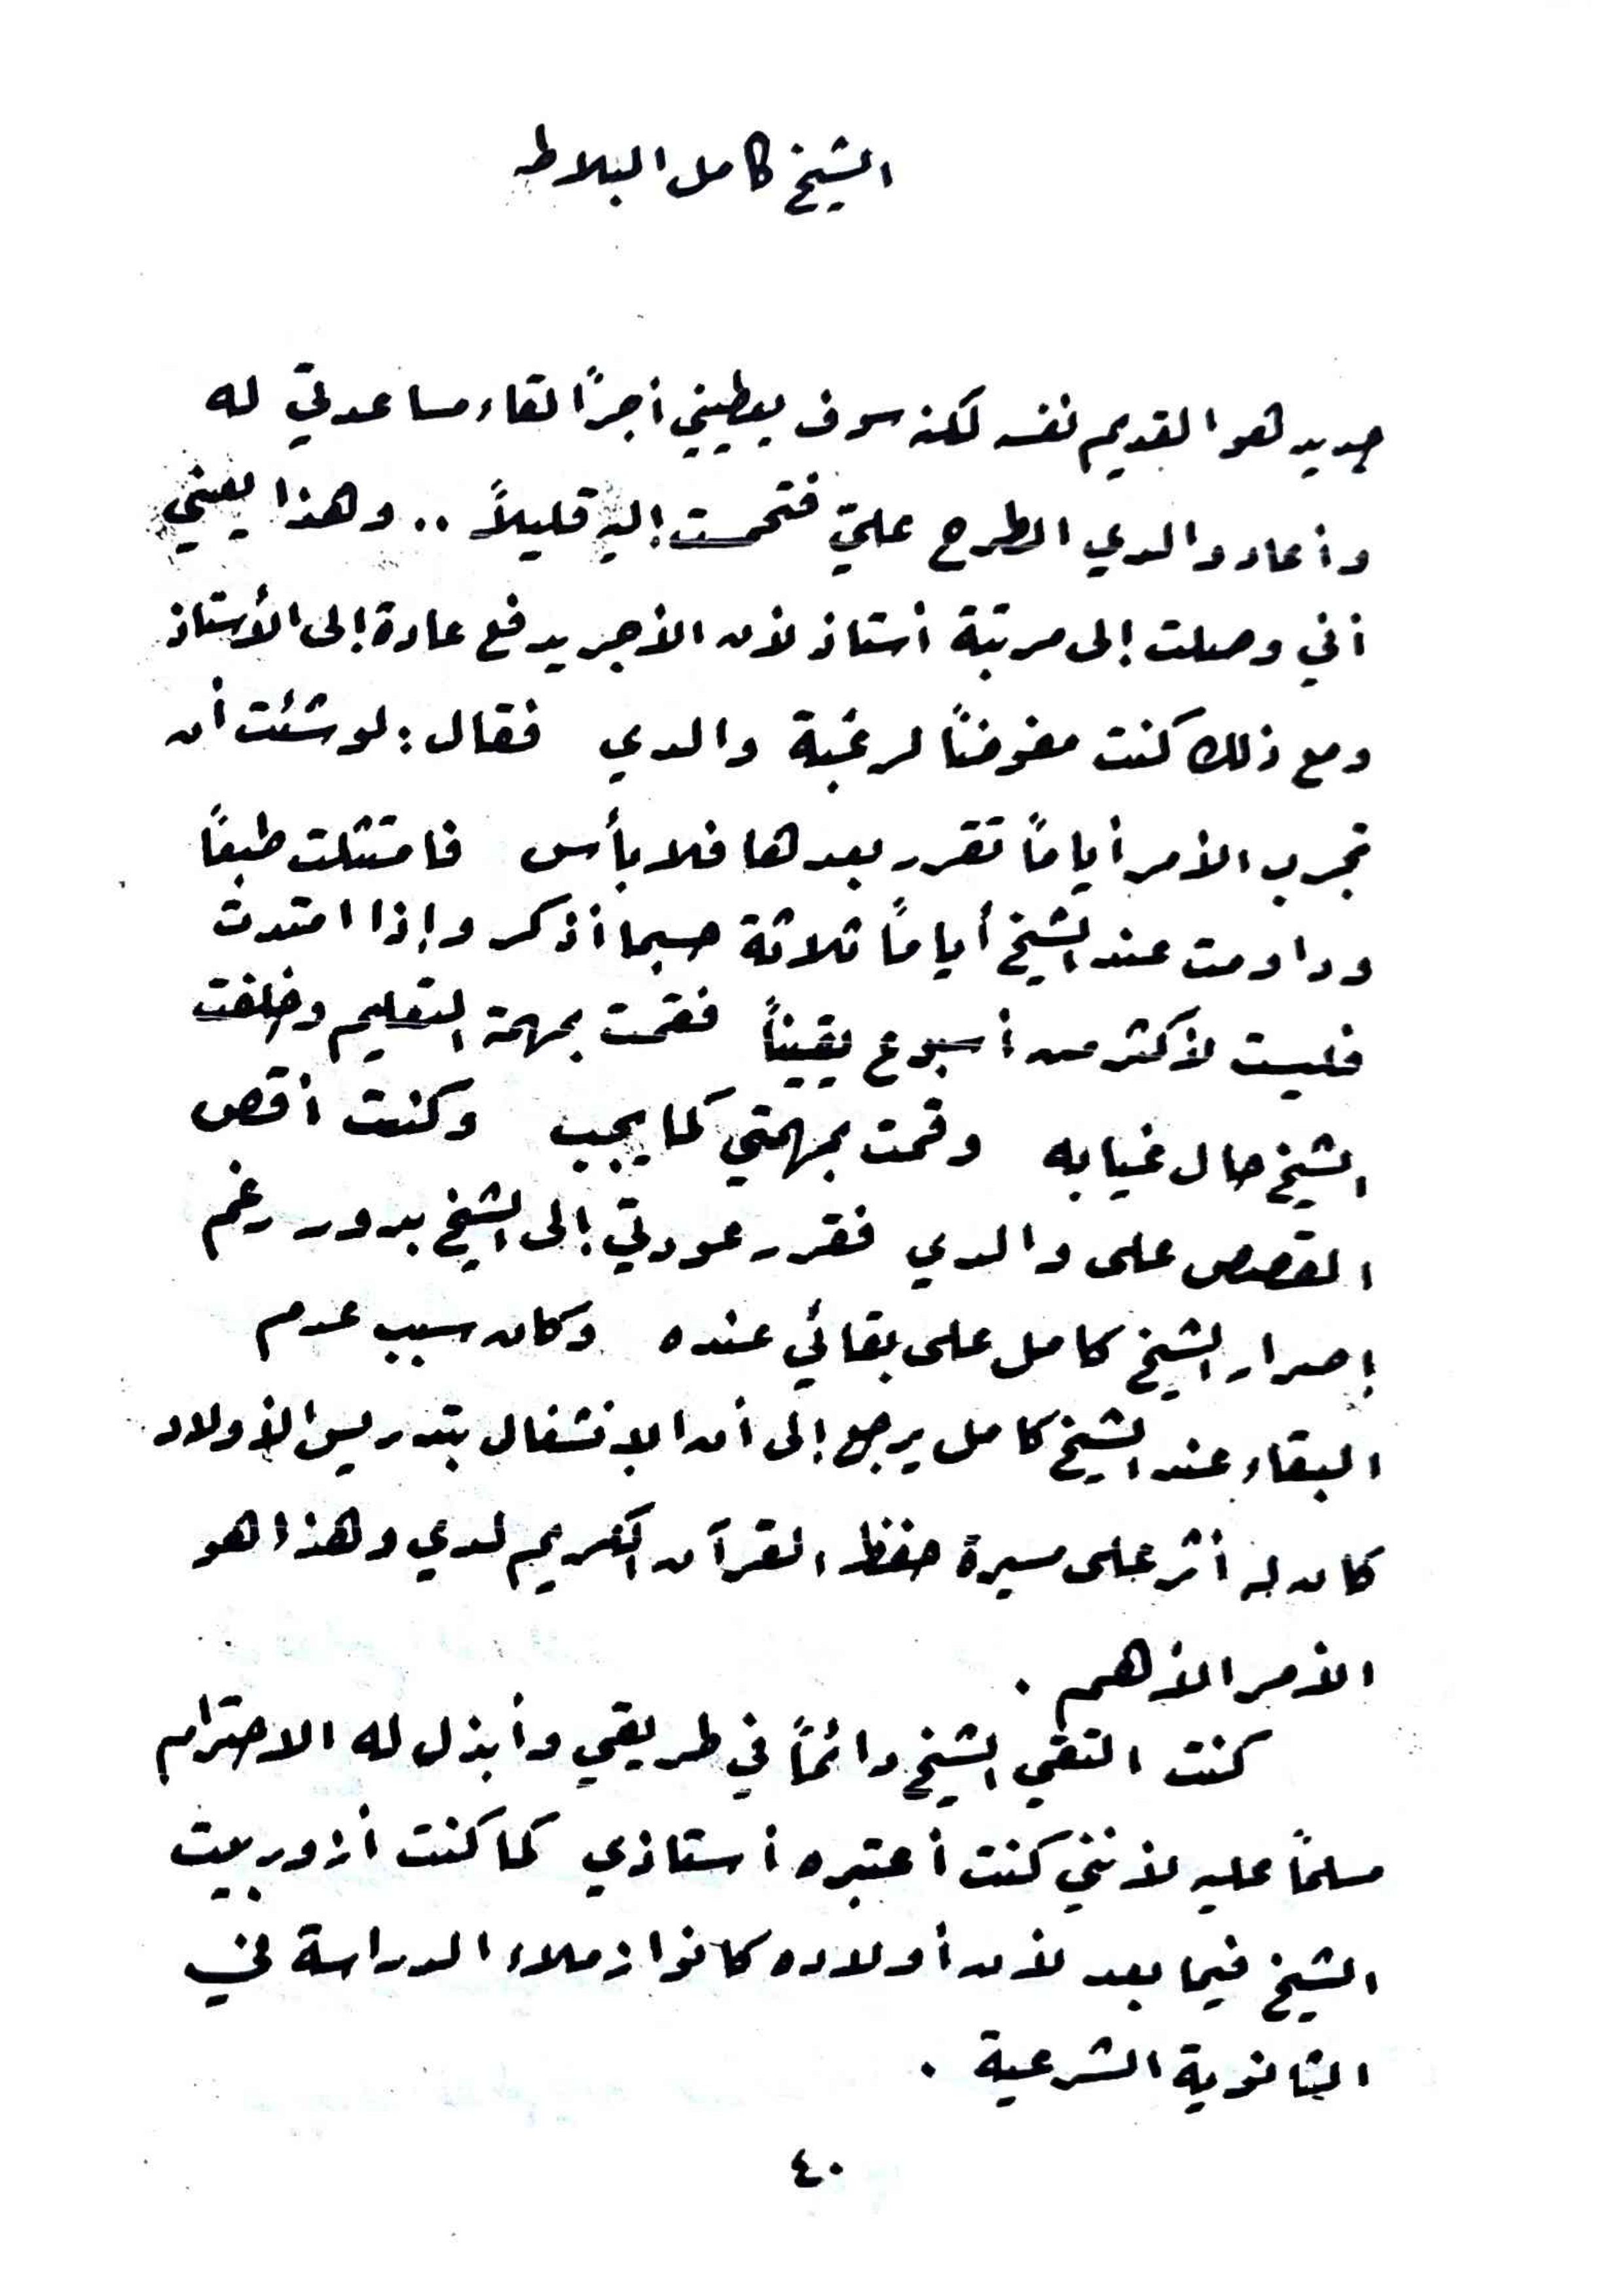 الشيخ كامل البلاط
جديد هو القديم نفسه لكنه سوف يعطيني أجرًا لقاء مساعدتي له
وأعاد والدي الطرح عليّ فتحمست إليه قليلاً .. وهذا يعني
أني وصلت إلى مرتبة أستاذ لأن الأجر يدفع عادة إلى الأستاذ
ومع ذلك كنت مفوضًا لرغبة والدي فقال : لو شئت أن
تجرب الأمر أيامًا تقرر بعدها فلا بأس فامتثلت طبعًا
وداومت عند الشيخ أيامًا ثلاثة حسبما أذكر وإذا امتدت
فليست لأكثر من أسبوع يقينًا فقمت بمهمة التعليم وخلفت
الشيخ حال غيابه وقمت بمهمتي كما يجب وكنت أقص
القصص على والدي فقرر عودتي إلى الشيخ بدور رغم
إصرار الشيخ كامل على بقائي عنده وكان سبب عدم
البقاء عند الشيخ كامل يرجع إلى أن الإنشغال بتدريس الأولاد
كان له أثر على مسيرة حفظ القرآن الكريم لدي وهذا هو
الأمر الأهم .
كنت التقي الشيخ دائمًا في طريقي وأبذل له الاحترام
مسلمًا عليه لأنني كنت أعتبره أستاذي كما كنت أزور بيت
الشيخ فيما بعد لأن أولاده كانوا زملاء الدراسة في
الثانوية الشرعية .
٤٠